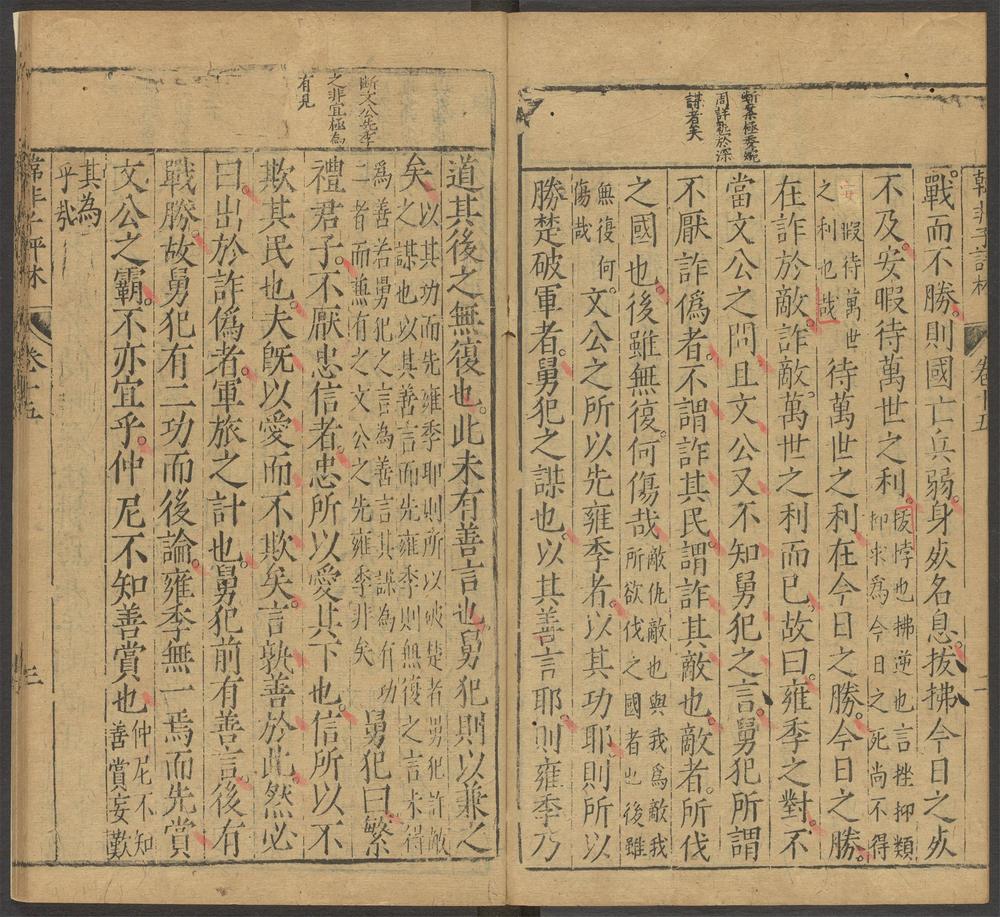 韓非子評林 卷十五 二
斷案極委婉
周詳熟於深
謀者矣
戰而不勝則國亡兵弱身死名息拔拂今日之死
不及安暇待萬世之利
拔悖也拂逆也言挫抑類
抑求爲今日之死尚不得
安暇待萬世
之利也哉
待萬世之利在今日之勝今日之勝
在詐於敵詐敵萬世之利而已故曰雍季之對不
當文公之問且文公又不知舅犯之言舅犯所謂
不厭詐僞者不謂詐其民謂詐其敵也敵者所伐
之國也後雖無復何傷哉
敵仇敵也與我爲敵我
所欲伐之國者也後雖
無復何
傷哉
文公之所以先雍季者以其功耶則所以
勝楚破軍者舅犯之謀也以其善言耶則雍季乃
斷文公先季
之非宜極爲
有見
道其後之無復也此未有善言也舅犯則以兼之
矣
以其功而先雍季耶則所以破楚者舅犯詐敵
之謀也以其善言而先雍季則無復之言未得
爲善若舅犯之言爲善言其謀爲有功
二者而兼有之文公之先雍季非矣
舅犯曰繁
禮君子不厭忠信者忠所以愛其下也信所以不
欺其民也夫旣以愛而不欺矣言孰善於此然必
曰出於詐僞者軍旅之計也舅犯前有善言後有
戰勝故舅犯有二功而後論雍季無一焉而先賞
文公之霸不亦宜乎仲尼不知善賞也
仲尼不知
善賞妄歎
其為
乎哉
韓非子評林 卷十五 三